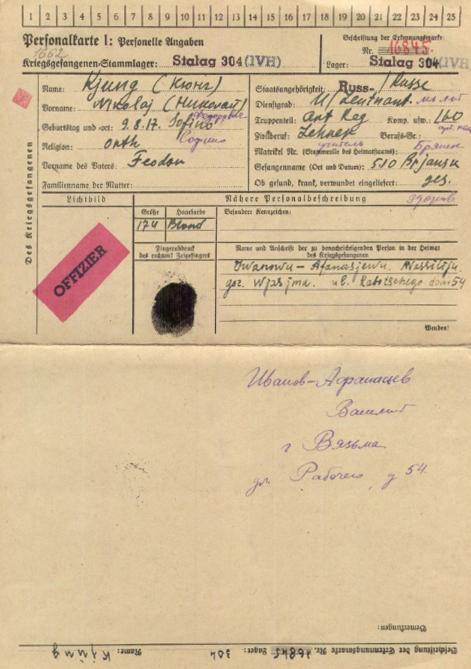 1 2 3 4 5 6 7 8 9 10 11 12 13 14 15 16 17 18 19 20 21 22 23 24 25
Personalkarte I: Personelle Angaben
Beschriftung der Erkennungsmarke
Nr. 16845
Kriegsgefangenen-Stammlager: Stalag 304 (IVH)
Lager: Stalag 304 (IVH)
Des Kriegsgefangenen
Name: Kjung (Кюнг)
Staatsangehörigkeit: Russ- / Russe
Vorname: Nikolaj (Николай)
Dienstgrad: U/Leutnant
Geburtstag und -ort: 9.8.17.
Truppenteil: Art Reg Komp. usw.: 160
Religion: orth
Zivilberuf: Lehrer Berufs-Gr.:
Vorname des Vaters: Feodor
Matrikel Nr. (Stammrolle des Heimatstaates): Брянск
Gefangennahme (Ort und Datum): 510 Brjansk
Familienname der Mutter:
Ob gesund, krank, verwundet eingeliefert: ges.
здоров
Lichtbild
Nähere Personalbeschreibung
Größe Haarfarbe Besondere Kennzeichen:
174 Blond
OFFIZIER
Fingerabdruck
des rechten! Zeigefingers
Name und Anschrift der zu benachrichtigenden Person in der Heimat
des Kriegsgefangenen
Iwanow - Afanasjew
Wenden!
Иванов-Афанасьев
Василий
г Вязьма
ул. Рабочего д 54.
Bemerkungen:
Beschriftung der Erkennungsmarke Nr. 16845 Lager: 304 Name: Kjung